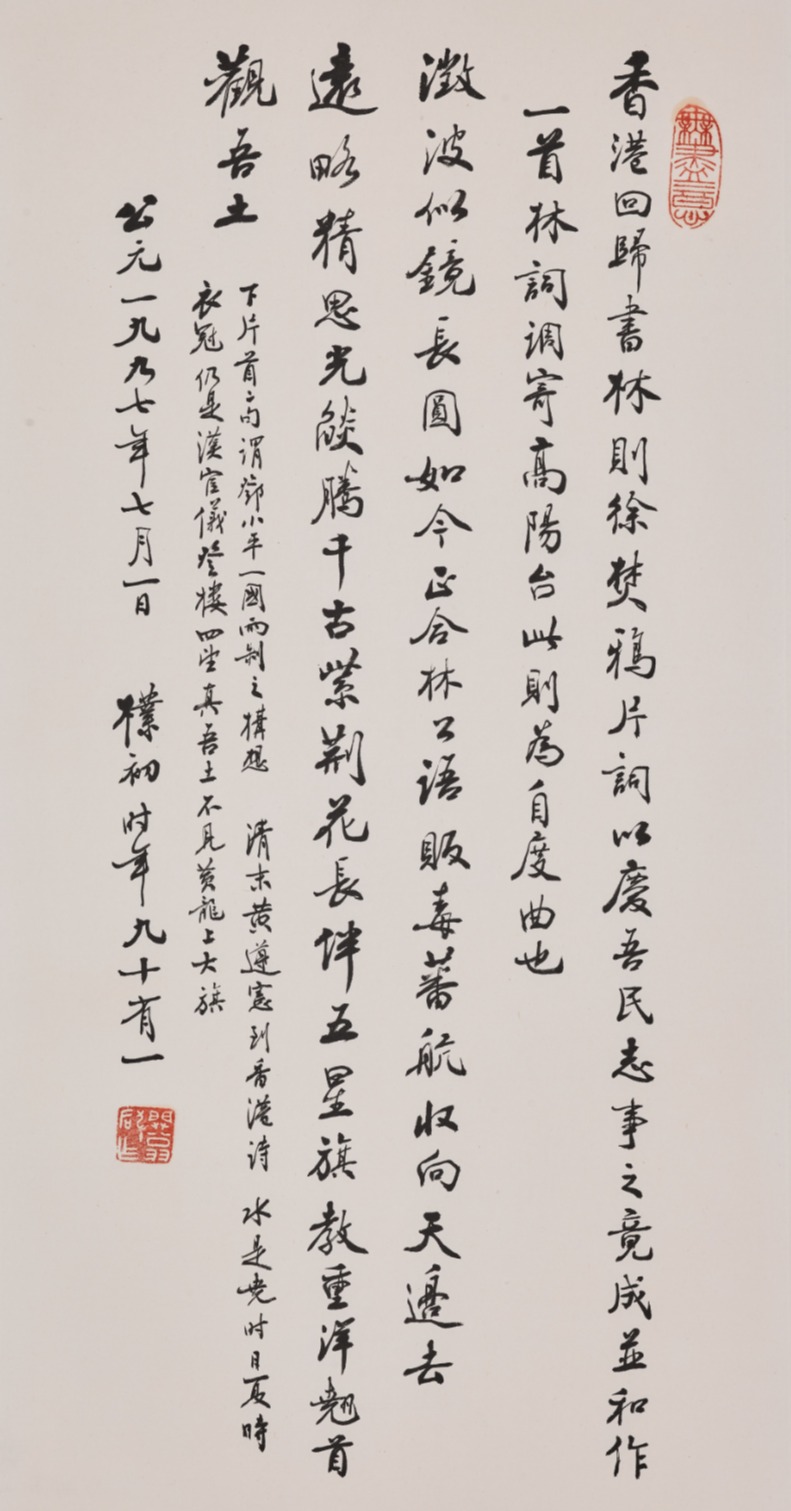 香港回歸書林則徐焚鴉片詞以慶吾民志事之竟成並和作
一首林詞調寄高陽台此則為自度曲也
澂波似鏡長圓如今正合林公語販毒蕃航收向天邊去
遠略精思光燄騰千古紫荆花長伴五星旗教重洋翹首
觀吾土
下片首二句謂鄧小平一國兩制之構想 清末黄遵憲到香港詩 水是堯時日夏時
衣冠仍是漢官儀登樓四望真吾土不見黄龍上大旗
公元一九九七年七月一日 樸初时年九十有一